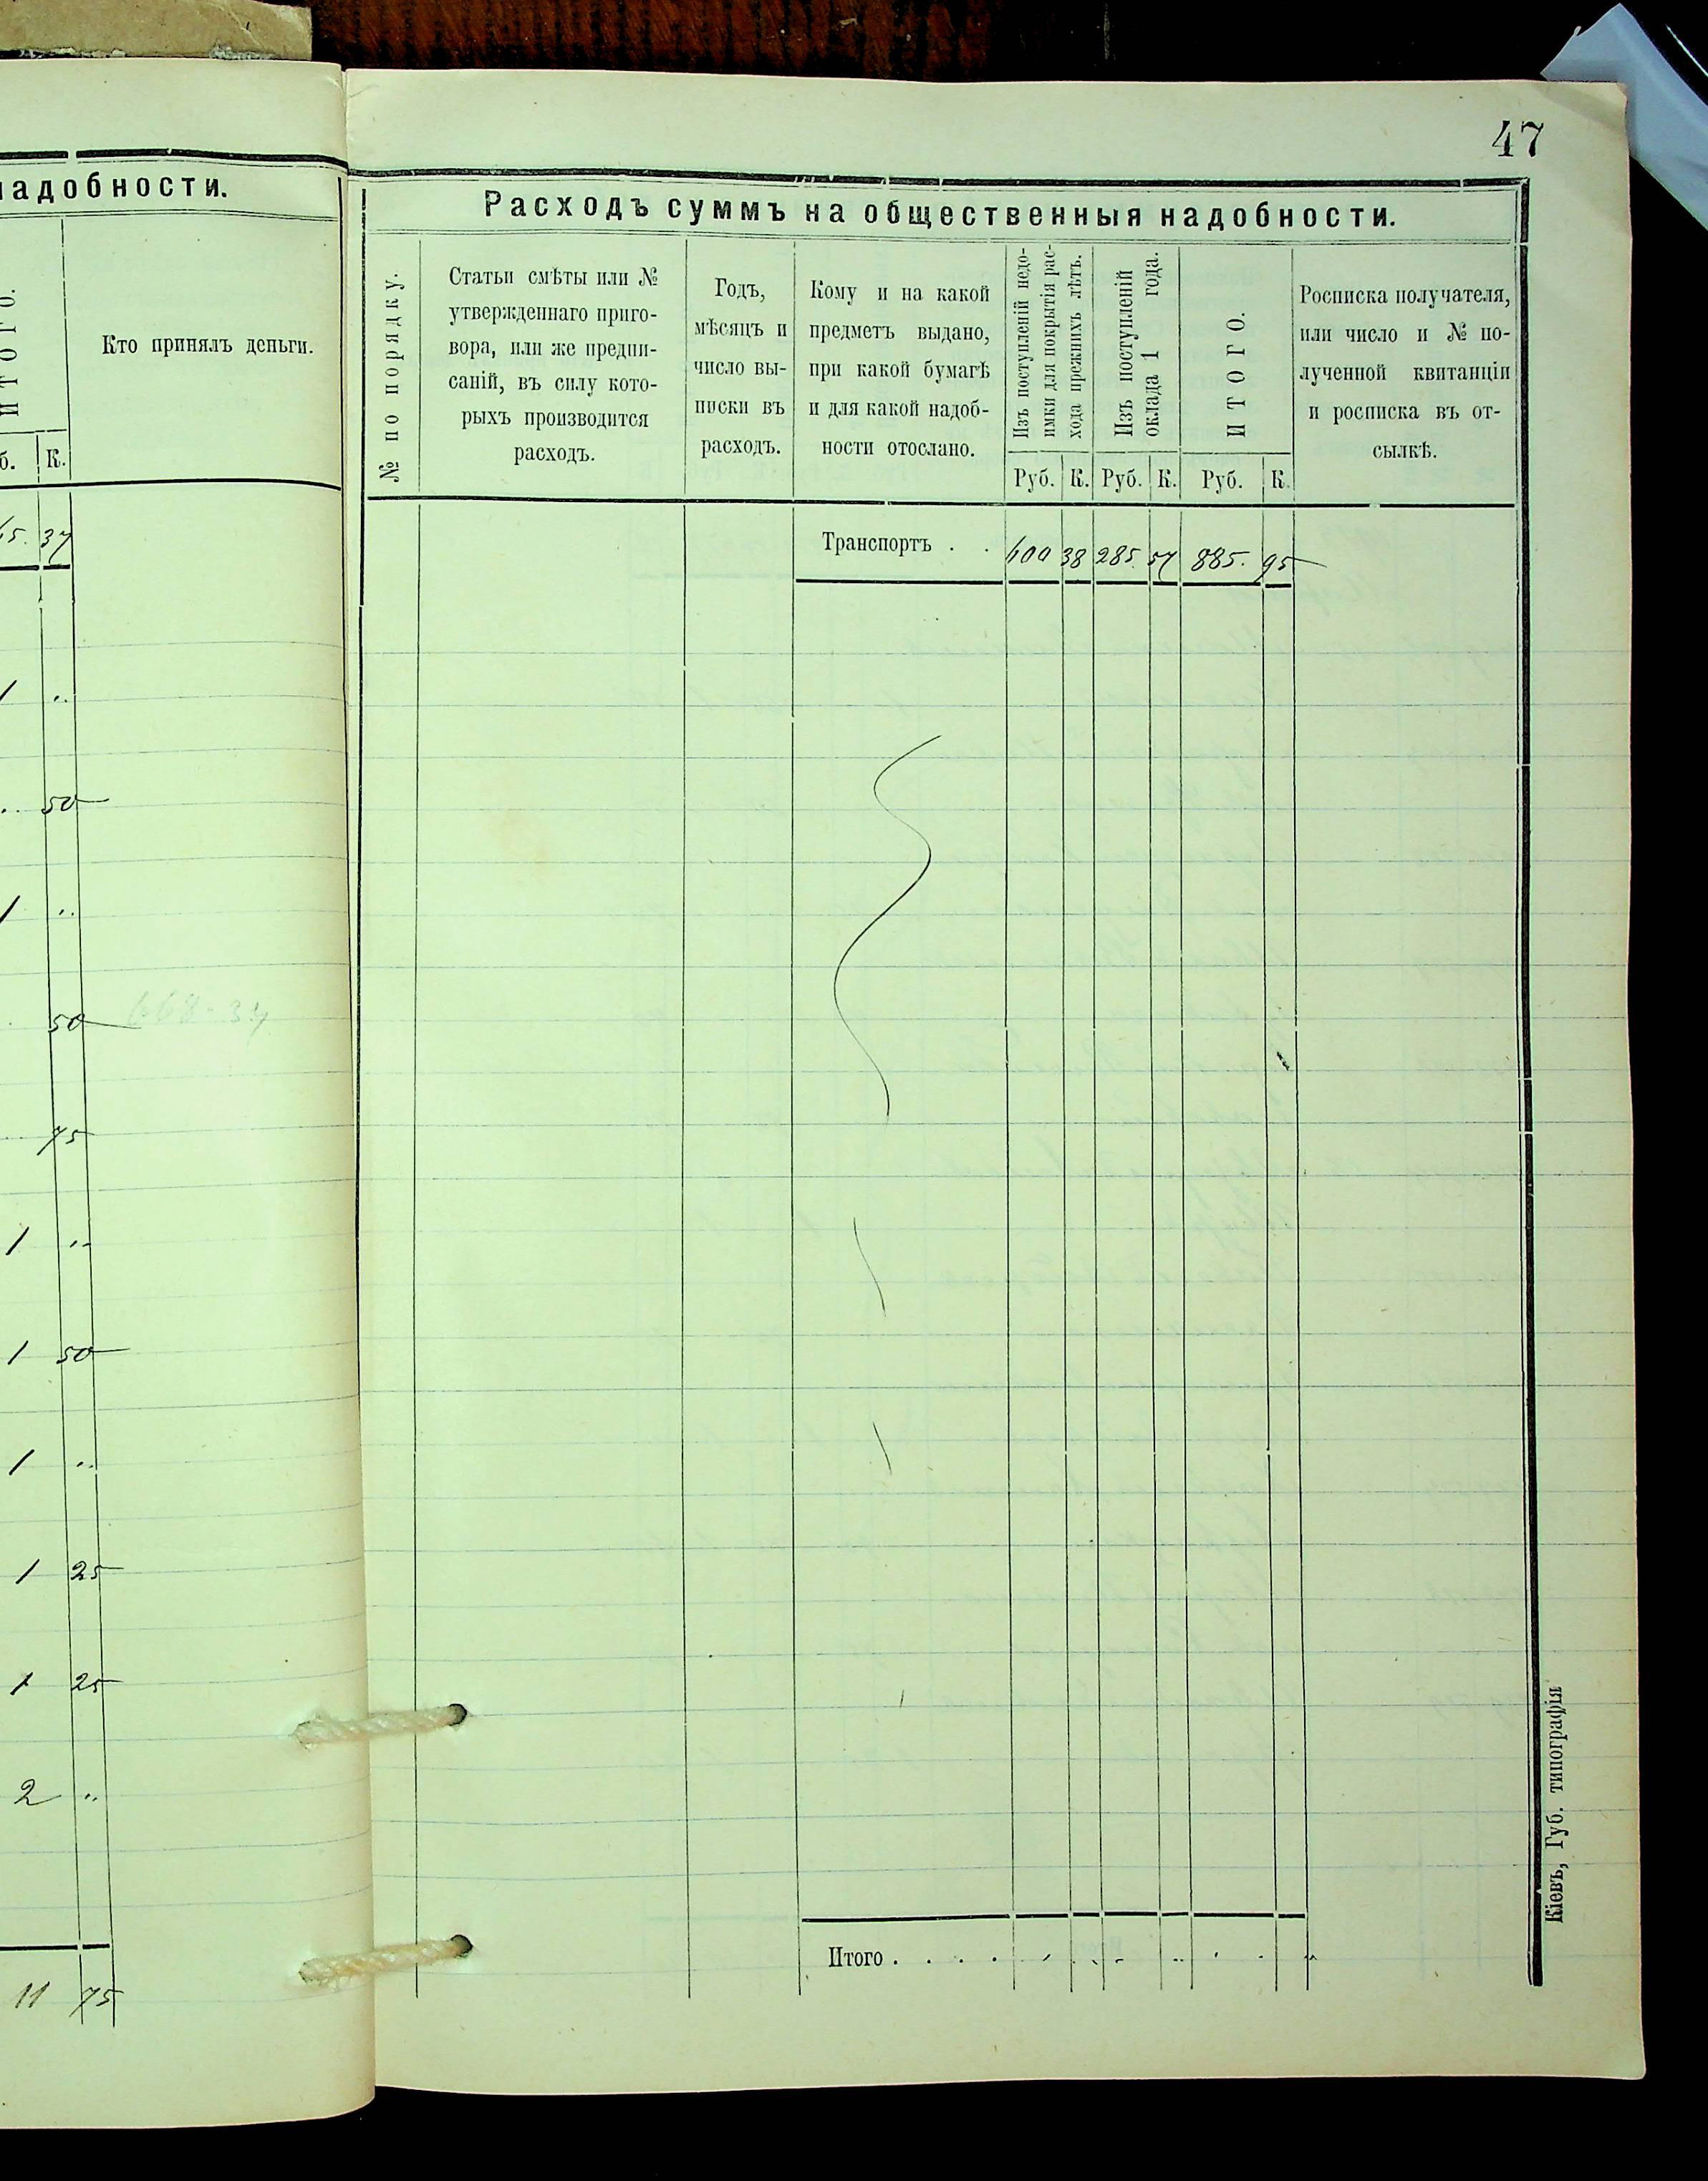 47
надобности.
ИТОГО.
Кто принялъ деньги.
б. К.
65. 37
1 ..
.. 50
1 ..
50
668-37
75
1 ..
1 50
1 ..
1 25
1 25
2 ..
11 75
Расходъ суммъ на общественныя надобности.
№ по порядку.
Статьи смѣты или №
утвержденнаго приго-
вора, или же предпи-
саній, въ силу кото-
рыхъ производится
расходъ.
Годъ,
мѣсяцъ и
число вы-
писки въ
расходъ.
Кому и на какой
предметъ выдано,
при какой бумагѣ
и для какой надоб-
ности отослано.
Изъ поступленій недо-
имки для покрытія рас-
хода прежнихъ лѣтъ.
Изъ поступленій
оклада 1 года.
ИТОГО.
Росписка получателя,
или число и № по-
лученной квитанціи
и росписка въ от-
сылкѣ.
Руб. К. Руб. К. Руб. К.
Транспортъ . . 600 38 285. 57 885. 95
Итого . . . .
Кіевъ, Губ. типографія